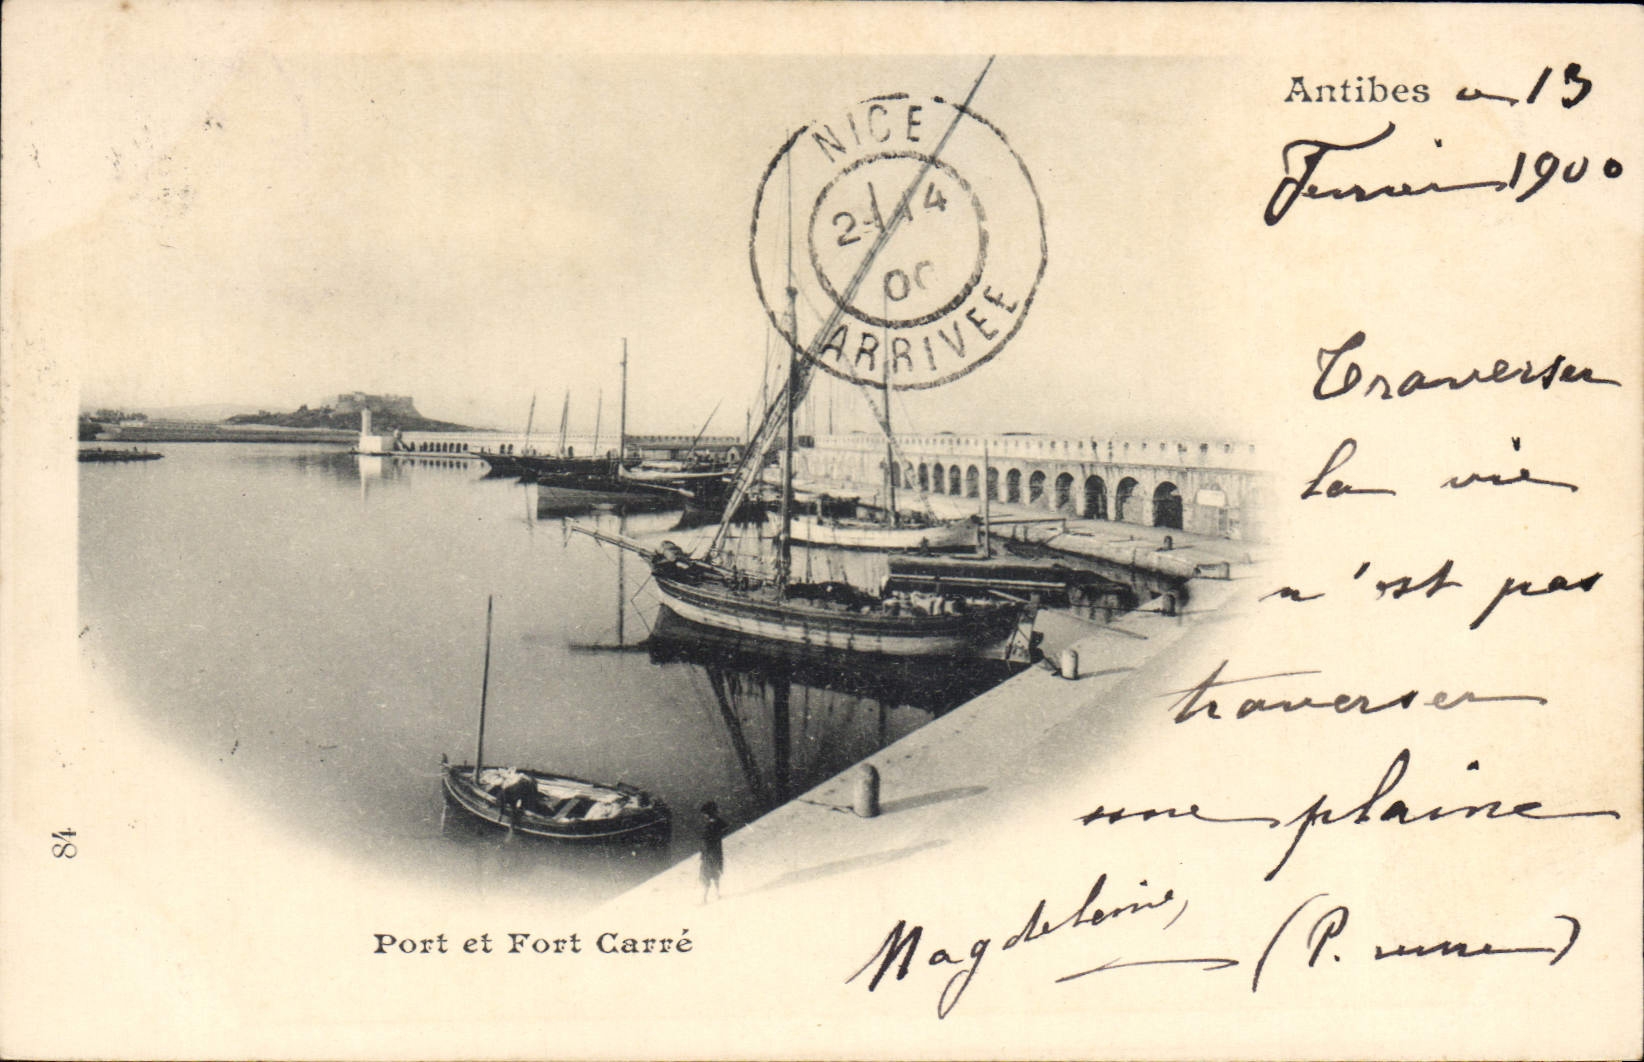 Antibes le 13
Fevrier 1900
NICE
14
00
ARRIVEE
Traverser
la vie
n'est pas
traverser
une plaine
Magdeleine,
(P. russe)
84
Port et Fort Carré